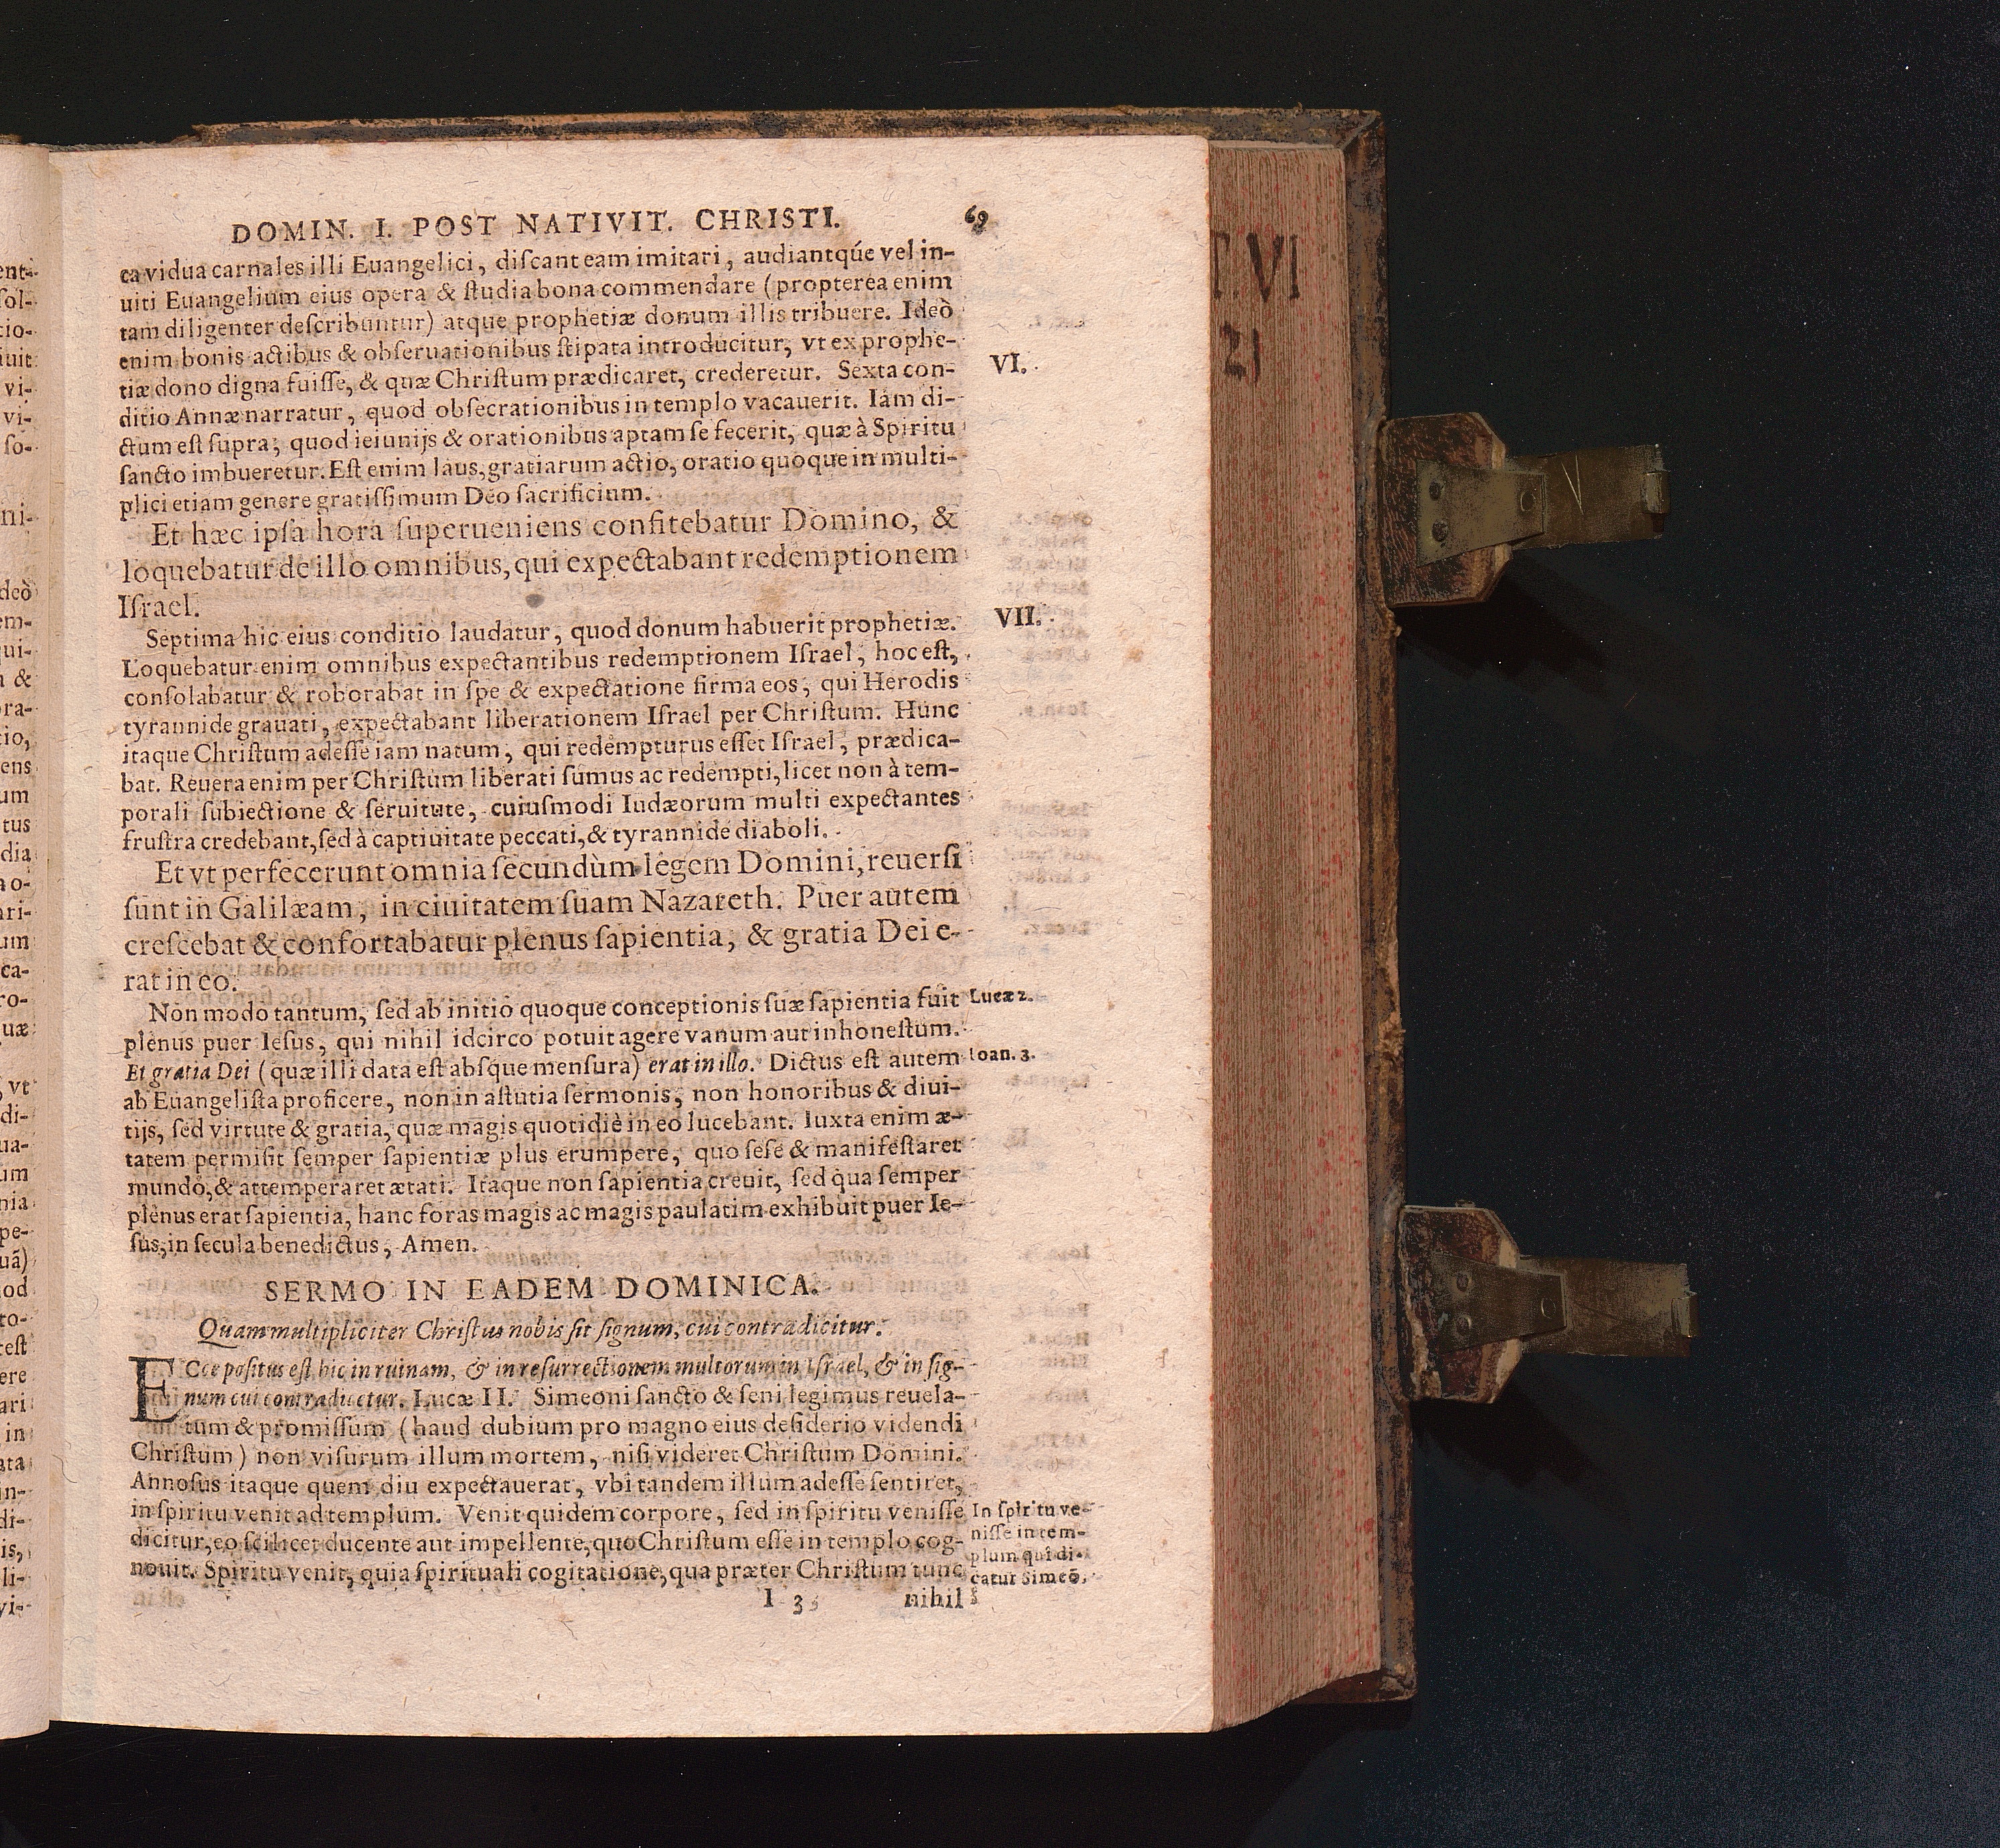 DOMIN. I. POST NATIVIT. CHRISTI. 69
ea vidua carnales illi Euangelici, diſcant eam imitari, audiantqúe vel in-
uiti Euangelium eius opera & ſtudia bona commendare (propterea enim
tam diligenter deſcribuntur) atque prophetiæ donum illis tribuere. Ideò
enim bonis actibus & obſeruationibus ſtipata introducitur, vt ex prophe-
tiæ dono digna fuiſſe, & quæ Chriſtum prædicaret, crederetur. Sexta con-
VI.
ditio Annæ narratur, quod obſecrationibus in templo vacauerit. Iam di-
ctum eſt ſupra, quod ieiunijs & orationibus aptam ſe fecerit, quæ à Spiritu
ſancto imbueretur. Eſt enim laus, gratiarum actio, oratio quoque in multi-
plici etiam genere gratiſſimum Deo ſacrificium.
Et hæc ipſa hora ſuperueniens confitebatur Domino, &
loquebatur de illo omnibus, qui expectabant redemptionem
Iſrael.
Septima hic eius conditio laudatur, quod donum habuerit prophetiæ.
VII.
Loquebatur enim omnibus expectantibus redemptionem Iſrael, hoc eſt,
conſolabatur & roborabat in ſpe & expectatione firma eos, qui Herodis
tyrannide grauati, expectabant liberationem Iſrael per Chriſtum. Hunc
itaque Chriſtum adeſſe iam natum, qui redempturus eſſet Iſrael, prædica-
bat. Reuera enim per Chriſtum liberati ſumus ac redempti, licet non à tem-
porali ſubiectione & ſeruitute, cuiuſmodi Iudæorum multi expectantes
fruſtra credebant, ſed à captiuitate peccati, & tyrannide diaboli.
Et vt perfecerunt omnia ſecundùm legem Domini, reuerſi
ſunt in Galilæam, in ciuitatem ſuam Nazareth. Puer autem
creſcebat & confortabatur plenus ſapientia, & gratia Dei e-
rat in eo.
Non modo tantum, ſed ab initio quoque conceptionis ſuæ ſapientia fuit
Lucæ 2.
plenus puer Ieſus, qui nihil idcirco potuit agere vanum aut inhoneſtum.
Et gratia Dei (quæ illi data eſt abſque menſura) erat in illo. Dictus eſt autem
Ioan. 3.
ab Euangeliſta proficere, non in aſtutia ſermonis, non honoribus & diui-
tijs, ſed virtute & gratia, quæ magis quotidiè in eo lucebant. Iuxta enim æ-
tatem permiſit ſemper ſapientiæ plus erumpere, quo ſeſe & manifeſtaret
mundo, & attemperaret ætati. Itaque non ſapientia creuit, ſed qua ſemper
plenus erat ſapientia, hanc foras magis ac magis paulatim exhibuit puer Ie-
ſus, in ſecula benedictus, Amen.
SERMO IN EADEM DOMINICA.
Quam multipliciter Chriſtus nobis ſit ſignum, cui contradicitur.
ECce poſitus eſt hic in ruinam, & in reſurrectionem multorum in Iſrael, & in ſig-
num cui contradicetur. Lucæ II. Simeoni ſancto & ſeni legimus reuela-
tum & promiſſum (haud dubium pro magno eius deſiderio videndi
Chriſtum) non viſurum illum mortem, niſi videret Chriſtum Domini.
Annoſus itaque quem diu expectauerat, vbi tandem illum adeſſe ſentiret,
in ſpiritu venit ad templum. Venit quidem corpore, ſed in ſpiritu veniſſe
dicitur, eo ſcilicet ducente aut impellente, quo Chriſtum eſſe in templo cog-
nouit. Spiritu venit, quia ſpirituali cogitatione, qua præter Chriſtum tunc
In ſpiritu ve-
niſſe in tem-
plum quî di-
catur Simeõ.
I 3 nihil
T. VI